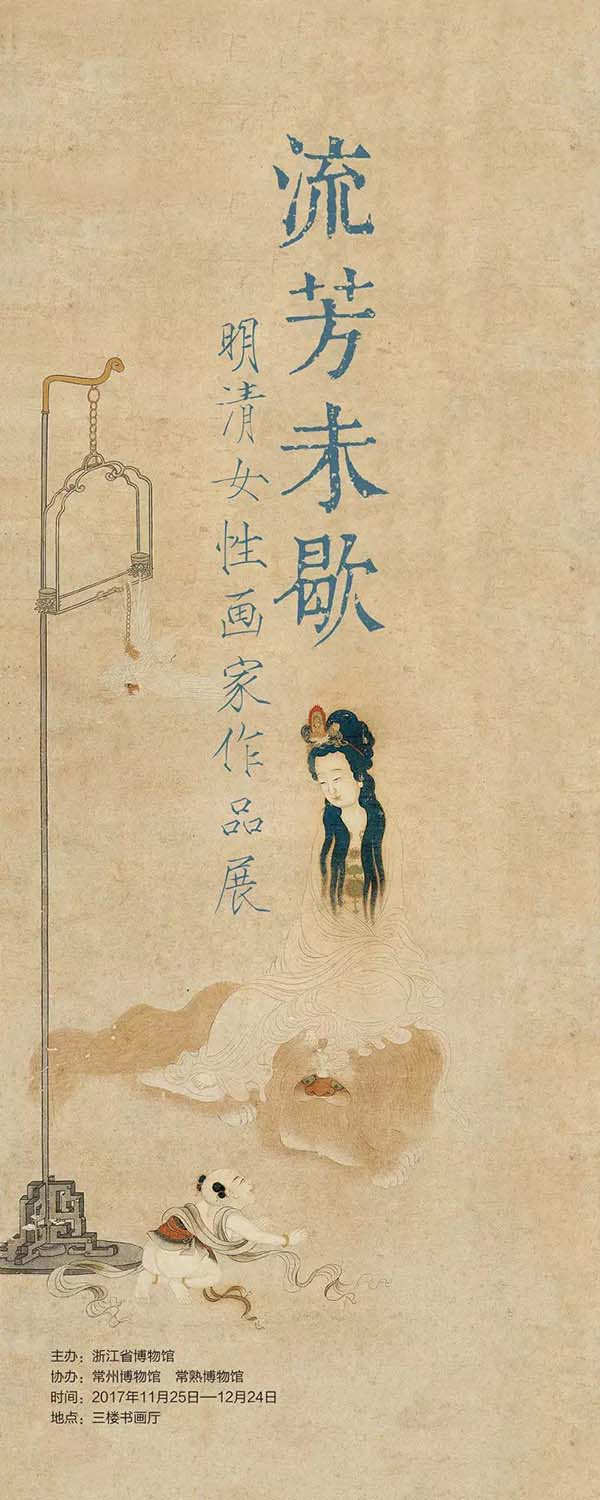 流芳未歇
明清女性画家作品展
主办：浙江省博物馆
协办：常州博物馆　常熟博物馆
时间：2017年11月25日—12月24日
地点：三楼书画厅